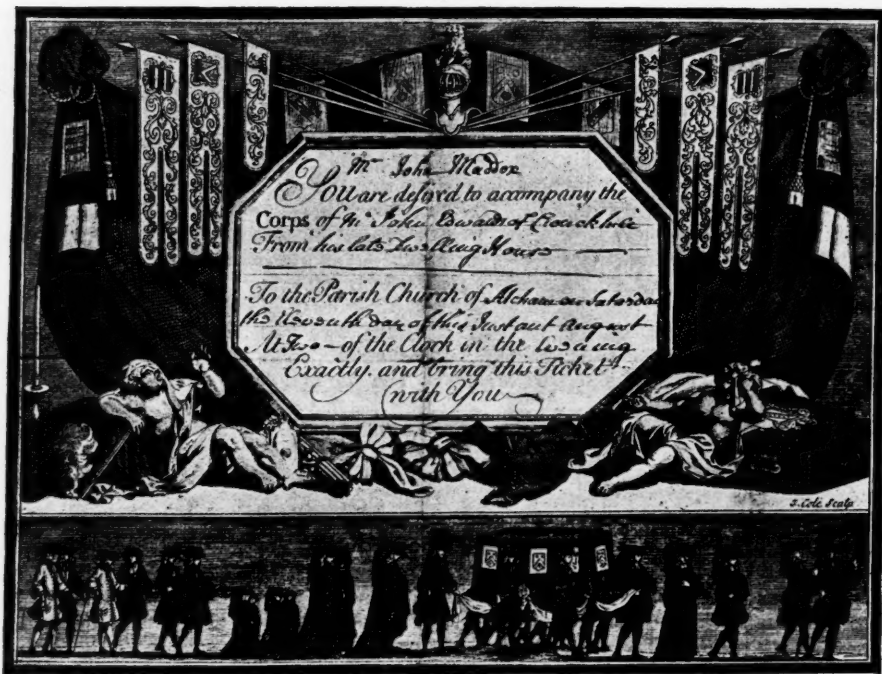 Mr John Maddox
You are desir'd to accompany the
Corps of Mr John Edwards of Crouckhill
From his late Dwelling House
To the Parish Church of on Saturday
the Eleventh day of this Instant August
At Two of the Clock in the Evening
Exactly. and bring this Ticket
with You
S. Cole Sculp